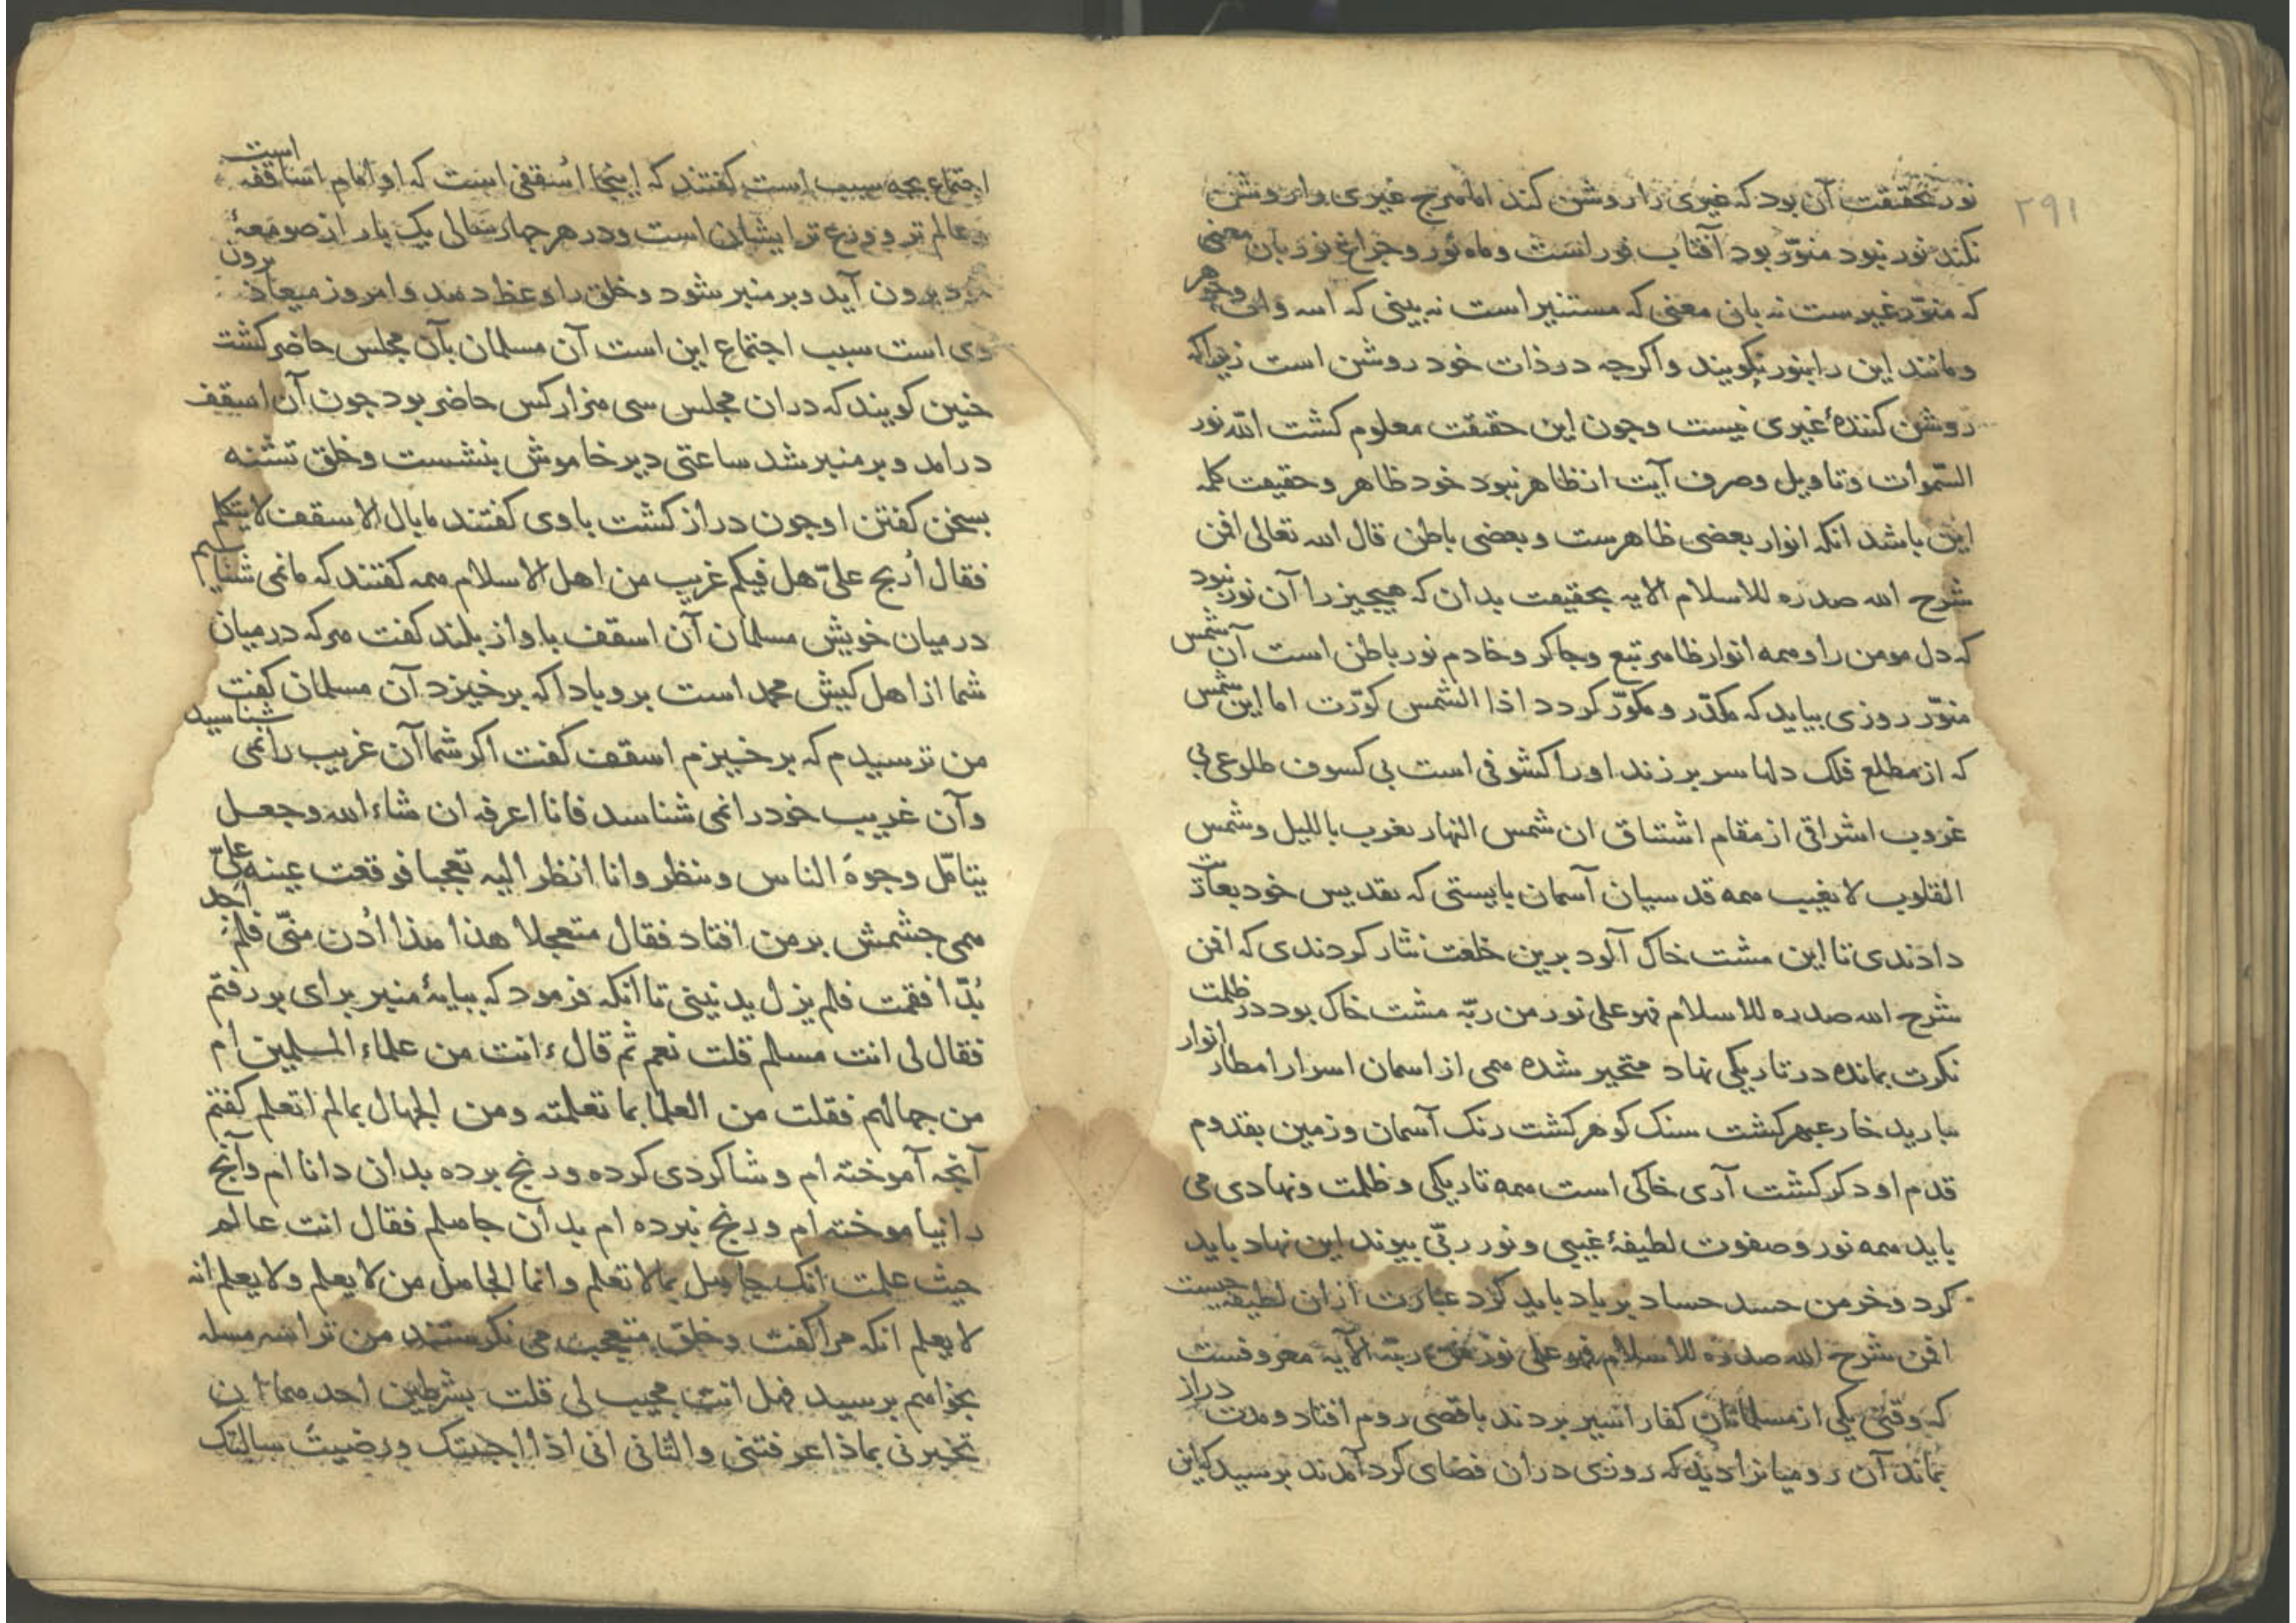 ۲۹۱
نور بحقیقت آن بود که غیری را روشن کند اما هرچ غیری را روشن
نکند نور نبود منوّر بود آفتاب نور است و ماه نور و چراغ نور بان معنی
که منوّر غیرست نه بان معنی که مستنیر است نه بینی که و جوهر
و مانند این را بنور نکویند و اکرچه در ذات خود روشن است زیراکه
روشن کنندهٔ غیری نیست وجون این حقیقت معلوم کشت الله نور
السّموات وتاویل وصرف آیت از ظاهر نبود خود ظاهر و حقیقت کلمه
این باشد انکه انوار بعضی ظاهرست و بعضی باطن قال الله تعالی افمن
شرح الله صدره للاسلام الایه بحقیقت بدان که هیجیز را آن نور نبود
که دل مومن را و همه انوار ظاهر تبع وجاکر و خادم نور باطن است آن شمس
منوّر روزی بیاید که مکدّر و مکوّر کردد اذا الشمس کوّرت اما این شمس
که از مطلع فلک دلها سر برزند او را کشوفی است بی کسوف طلوعی بی
غروب اشراقی از مقام اشتیاق ان شمس النهار تغرب باللیل و شمس
القلوب لا تغیب همه قدسیان آسمان بایستی که تقدیس خود بعاریت
دادندی تا این مشت خاک آلود برین خلعت نثار کردندی که افمن
شرح الله صدره للاسلام فهو علی نور من ربّه مشت خاک بود در ظلمت
نکرت بمانده در تاریکی نهاد متحیر شده همی از اسمان اسرار امطار انوار
بارید خار عبهر کشت سنک کوهر کشت رنک آسمان و زمین بقدوم
قدم او دکر کشت آری خاکی است همه تاریکی و ظلمت ونهادی می
باید همه نور وصفوت لطیفهٔ غیبی و نور ربّی بیوند این نهاد باید
کرد و خرمن حسد حساد بر باد باید کرد عبارت ازان لطیفه جیست
افمن شرح الله صدره للاسلام فهو علی نور من ربّه الآیه معروفست
که وقتی یکی از مسلمانان کفار اسیر بردند باقصی روم افتاد و مدت دراز
بماند آن رومیانرا دید که روزی دران فضای کرد آمدند برسید که این
اجتماع بجه سبب است کفتند که اینجا اُسقفی است که او امام اساقفه است
و عالم تر و ورع تر ایشان است و در هر جهار سالی یک بار از صومعهٔ
خود برون آید و بر منبر شود و خلق را وعظ دهد وامروز میعاد برون
وی است سبب اجتماع این است آن مسلمان بآن مجلس حاضر کشت
جنین کویند که دران مجلس سی هزار کس حاضر بود جون آن اسقف
درامد و بر منبر شد ساعتی دیر خاموش بنشست و خلق تشنه
بسخن کفتن او جون دراز کشت باوی کفتند ما بال الاسقف لا یتکلم
فقال اُرتج علیّ هل فیکم غریب من اهل الاسلام همه کفتند که ما نمی شناسیم
در میان خویش مسلمان آن اسقف باواز بلند کفت هرکه در میان
شما از اهل کیش محمد است برو بادا که برخیزد آن مسلمان کفت
من ترسیدم که برخیزم اسقف کفت اکر شما آن غریب را نمی شناسید
وآن غریب خود را نمی شناسد فانا اعرفه ان شاء الله وجعل
یتامّل وجوهَ الناس وینظر وانا انظر الیه تعجبا فوقعت عینه علیّ
همی جشمش بر من افتاد فقال متعجلا هذا هذا اُدن منّی فلم اجد
بُدّا فقمت فلم یزل یدنینی تا انکه فرمود که ببایهٔ منبر برای بر رفتم
فقال لی انت مسلم قلت نعم ثم قال ءانت من علماء المسلمین ام
من جهالهم فقلت من العلما بما تعلمته ومن الجهال بما لم اتعلم کفتم
آنجه آموخته ام و شاکردی کرده ورنج برده بدان دانا ام وآنج
را نیاموخته ام ورنج نبرده ام بدان جاهلم فقال انت عالم
حیث علمت انک جاهل بما لا تعلم وانما الجاهل من لا یعلم ولا یعلم انه
لا یعلم انکه مرا کفت و خلق متعجب می نکرستند من ترا سه مسله
بخواهم برسید فهل انت مجیب لی قلت بشرطین احدهما ان
تخبرنی بماذا عرفتنی والثانی انی اذا اجبتک ورضیتَ سالتک